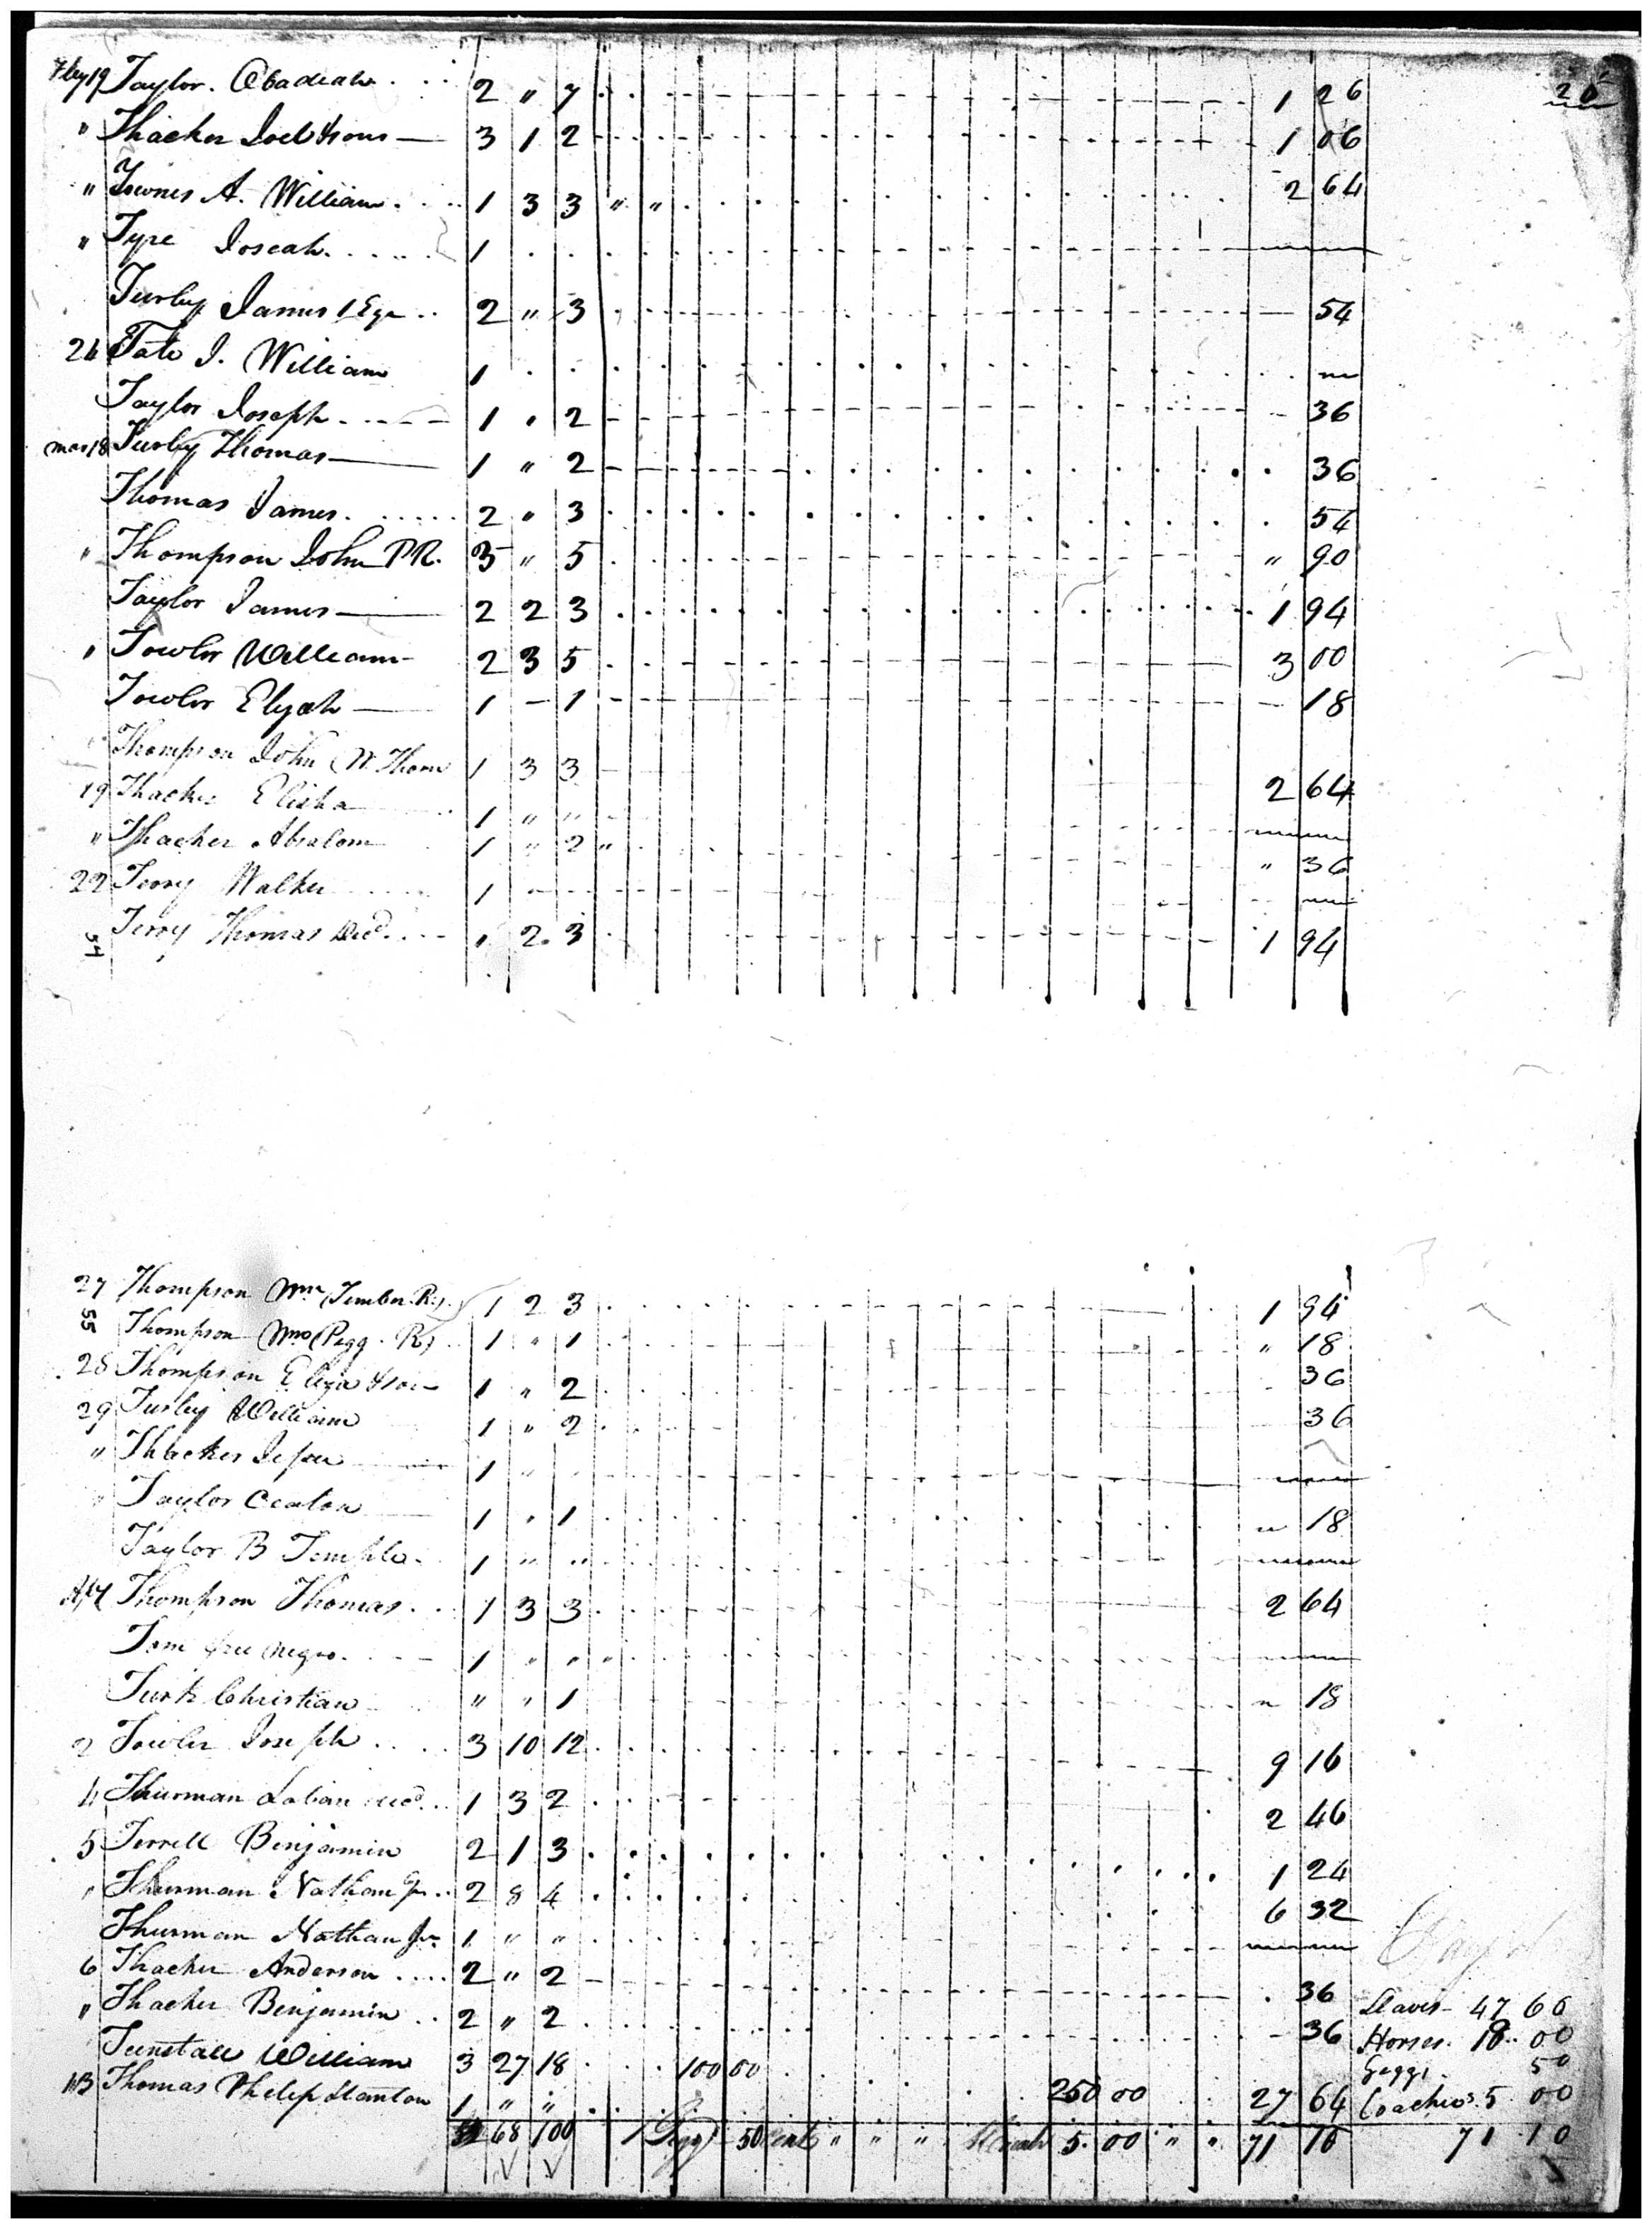 26
Feby 19 Taylor. Obadiah 2 " 7 1 26
" Thacker Joel & sons 3 1 2 1 06
" Townes A. William 1 3 3 " " 2 64
" Type Joseah 1
Turley James 2 " 3 54
26 Tate J. William 1
Taylor Joseph 1 " 2 36
mar 18 Turley Thomas 1 " 2 36
Thomas James 2 " 3 54
" Thompson John P R. 3 " 5 " 90
Taylor James 2 2 3 1 94
" Towler William 2 3 5 3 00
Towler Elijah 1 - 1 18
Thompson John (W. Thom 1 3 3 2 64
19 Thacker Elisha 1 " "
" Thacker Absalom 1 " 2 " " 36
22 Terry Walker 1
Terry Thomas Decd. " 2 3 1 94
54
27 Thompson Wm (Timber R.) 1 2 3 1 94
55 Thompson Wm (Pigg. R) 1 " 1 " 18
28 Thompson & son 1 " 2 36
29 Turley William 1 " 2 36
" Thacker 1 "
" Taylor 1 " 1 " 18
Taylor B Temple 1 " "
Apl 1 Thompson Thomas 1 3 3 2 64
Tom free negro 1 " " "
Turk Christian " " 1 " 18
2 Towler Joseph 3 10 12 9 16
4 Thurman Laban decd. 1 3 2 2 46
5 Terrell Benjamin 2 1 3 1 24
" Thurman Nathan 2 8 4 6 32
Thurman Nathan Jr 1 " "
6 Thacker Anderson 2 " 2 36 Slaves 47 60
" Thacker Benjamin 2 " 2 36 Horses. 18 00
Tunstall William 3 27 18 100 00 250 00 27 64 Giggs. 50
13 Thomas Philip Stanton 1 " " Coaches 5 00
68 100 1 Gigg 50 cents " " " 5. 00 " " 71 10 71 10